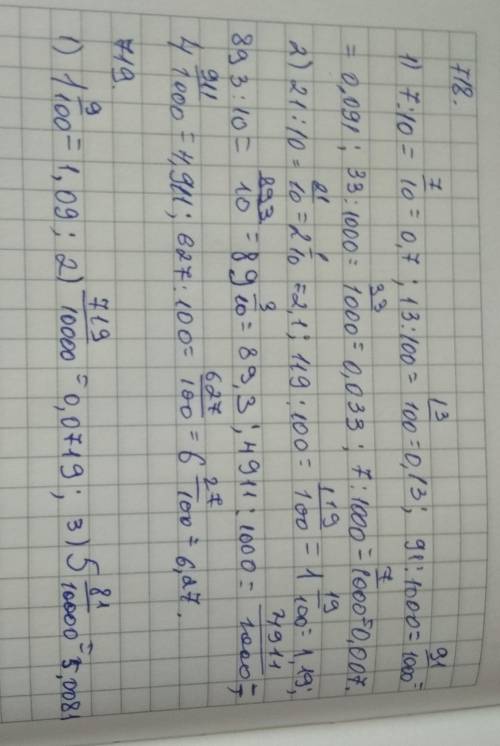 718.
1) 7:10 = 7/10 = 0,7 ; 13:100 = 13/100 = 0,13 ; 91:1000 = 91/1000 =
= 0,091 ; 33:1000 = 33/1000 = 0,033 ; 7:1000 = 7/1000 = 0,007.
2) 21:10 = 21/10 = 2 1/10 = 2,1 ; 119:100 = 119/100 = 1 19/100 = 1,19 ;
893:10 = 893/10 = 89 3/10 = 89,3 ; 4911:1000 = 4911/1000 =
4 911/1000 = 4,911 ; 627:100 = 627/100 = 6 27/100 = 6,27.
719.
1) 1 9/100 = 1,09 ; 2) 719/10000 = 0,0719 ; 3) 5 81/10000 = 5,0081